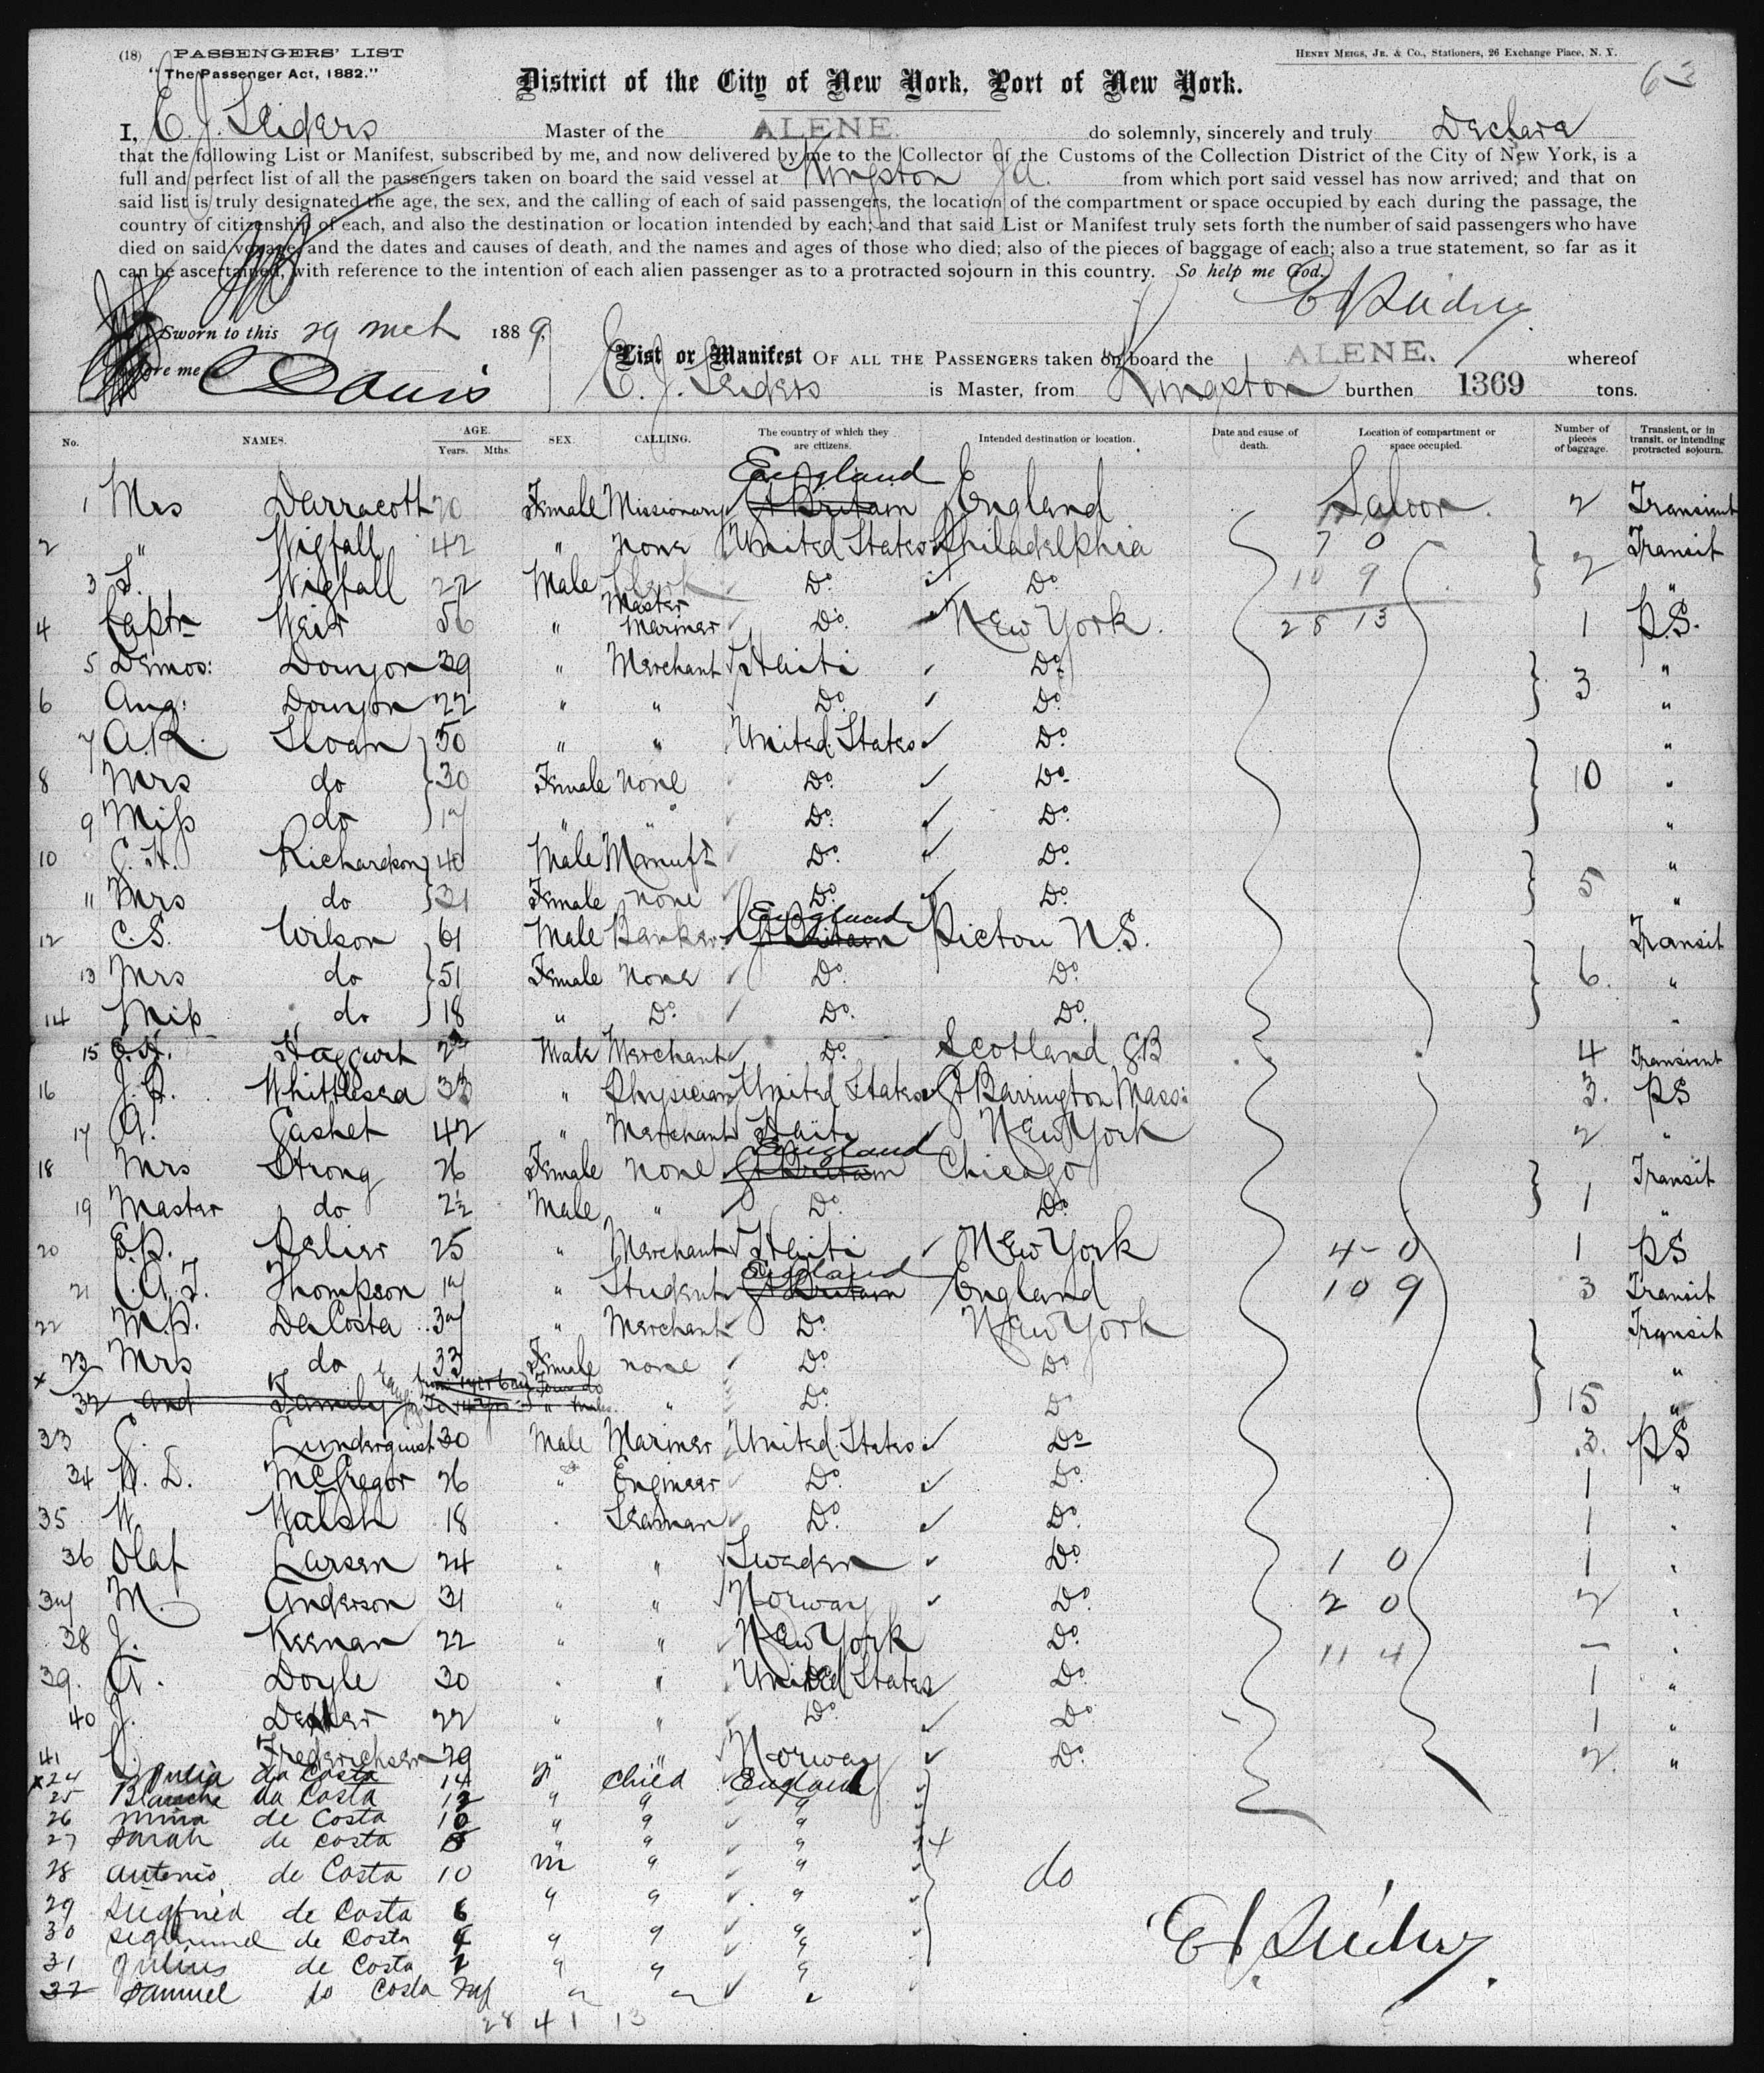 (18) PASSENGERS' LIST
"The Passenger Act, 1882."
HENRY MEIGS, JR. & CO., Stationers, 26 Exchange Place, N. Y.
63
District of the City of New York, Port of New York.
I, E. J. Seiders Master of the ALENE. do solemnly, sincerely and truly Declare
that the following List or Manifest, subscribed by me, and now delivered by me to the Collector of the Customs of the Collection District of the City of New York, is a
full and perfect list of all the passengers taken on board the said vessel at Kingston Ja. from which port said vessel has now arrived; and that on
said list is truly designated the age, the sex, and the calling of each of said passengers, the location of the compartment or space occupied by each during the passage, the
country of citizenship of each, and also the destination or location intended by each; and that said List or Manifest truly sets forth the number of said passengers who have
died on said voyage, and the dates and causes of death, and the names and ages of those who died; also of the pieces of baggage of each; also a true statement, so far as it
can be ascertained, with reference to the intention of each alien passenger as to a protracted sojourn in this country. So help me God.
Sworn to this 29 mch 1889.
before me C Davis
List or Manifest OF ALL THE PASSENGERS taken on board the ALENE. whereof
E. J. Seiders is Master, from Kingston burthen 1369 tons.
No. NAMES. AGE. Years. Mths. SEX. CALLING. The country of which they are citizens. Intended destination or location. Date and cause of death. Location of compartment or space occupied. Number of pieces of baggage. Transient, or in transit, or intending protracted sojourn.
England
1 Mrs Darracott 20 Female Missionary Gt Britain England Saloon. 2 Transient
2 " Wigfall 42 " None United States Philadelphia 7 0 2 Transit
3 S. Wigfall 22 Male Clerk Do. Do. 10 9 "
4 Captn Weir 56 " Master Mariner Do. New York. 28 13 1 P.S.
5 Demos: Donyon 39 " Merchant Haiti Do. 3 "
6 Aug: Donyon 22 " " Do. Do. "
7 A.R. Sloan 50 " " United States Do. "
8 Mrs do 30 Female None Do. Do. 10 "
9 Miss do 17 " " Do. Do. "
10 J.H. Richardson 40 Male Manufr Do. Do. "
11 Mrs do 31 Female None Do. Do. 5 "
England
12 C.S. Wilson 61 Male Banker Gt Britain Pictou N.S. Transit
13 Mrs do 51 Female None Do. Do. 6. "
14 Miss do 18 " Do. Do. Do. "
15 Haggart Male Merchant Do. Scotland G.B 4 Transient
16 J.P. Whittlesea 33 " Physician United States Gt Barrington Mass: 3. PS
17 A. Gasket 42 " Merchant Haiti New York 2 "
England
18 Mrs Strong 26 Female None Gt Britain Chicago Transit
19 Master do 2½ Male " Do. Do. 1 "
20 E.P. Pelier 25 " Merchant Haiti New York 4-0 1 PS
England
21 A.J. Thompson 17 " Student Gt Britain England 10 9 3 Transit
22 M.P. DaCosta 37 " Merchant Do. New York Transit
x 23 Mrs do 33 Female none Do. Do "
32 and Family " Do. Do 15 "
33 Lunderquist 30 Male Mariner United States Do 3. PS
34 W. D. McGregor 26 " Engineer Do. Do. 1 "
35 W. Walsh 18 Seaman Do. Do. 1
36 Olaf Larsen 24 " " Sweden Do. 1 0 1
37 M. Anderson 31 " " Norway Do. 2 0 2
38 J. Keenan 22 " " New York Do. 11 4 -
39. A. Doyle 30 " " United States Do. 1 "
40 J. 22 " " Do. Do. 1 "
41 Frederichsen 29 " " Norway Do. 2. "
x 24 Julia da Costa 14 child England
25 Blanche da Costa 12 " " "
26 Mina de Costa 10 " " "
27 Sarah de Costa 8 " " "
28 Antonio de Costa 10 m " " do
29 Siegfried de Costa 6 " " "
30 de Costa 4 " " "
31 Julius de Costa 2 " " "
32 Samuel do Costa Inf " " "
28 41 13